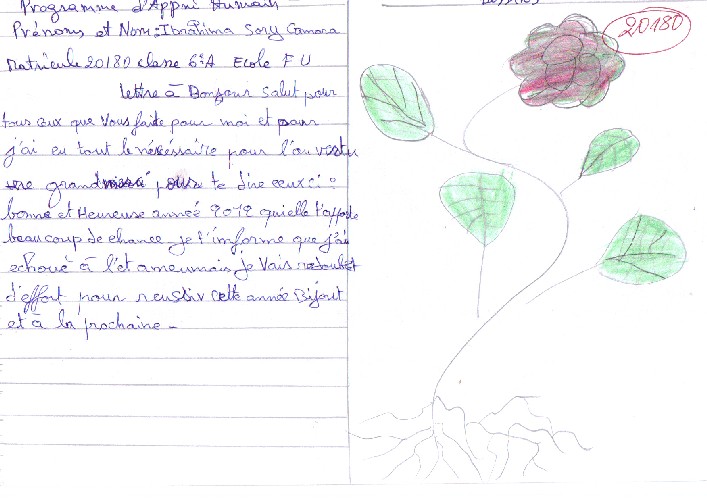 Programme d'Appui Humain
Prénoms et Nom: Ibrahima Sory Camara
Matricule 20180 classe 6e A Ecole F U
lettre à Bonjour salut pour
tous ceux que vous faite pour moi et pour
j'ai eu tout le nécéssaire pour l'ouvertu
une grand pour te dire ceux ci :
bonne et Heureuse année 2012 qu'elle t'apporte
beaucoup de chance je t'informe que j'ai
echoué à mais je vais redoublet
d'effort pour reussir cette année Bijout
et à la prochaine -
20180